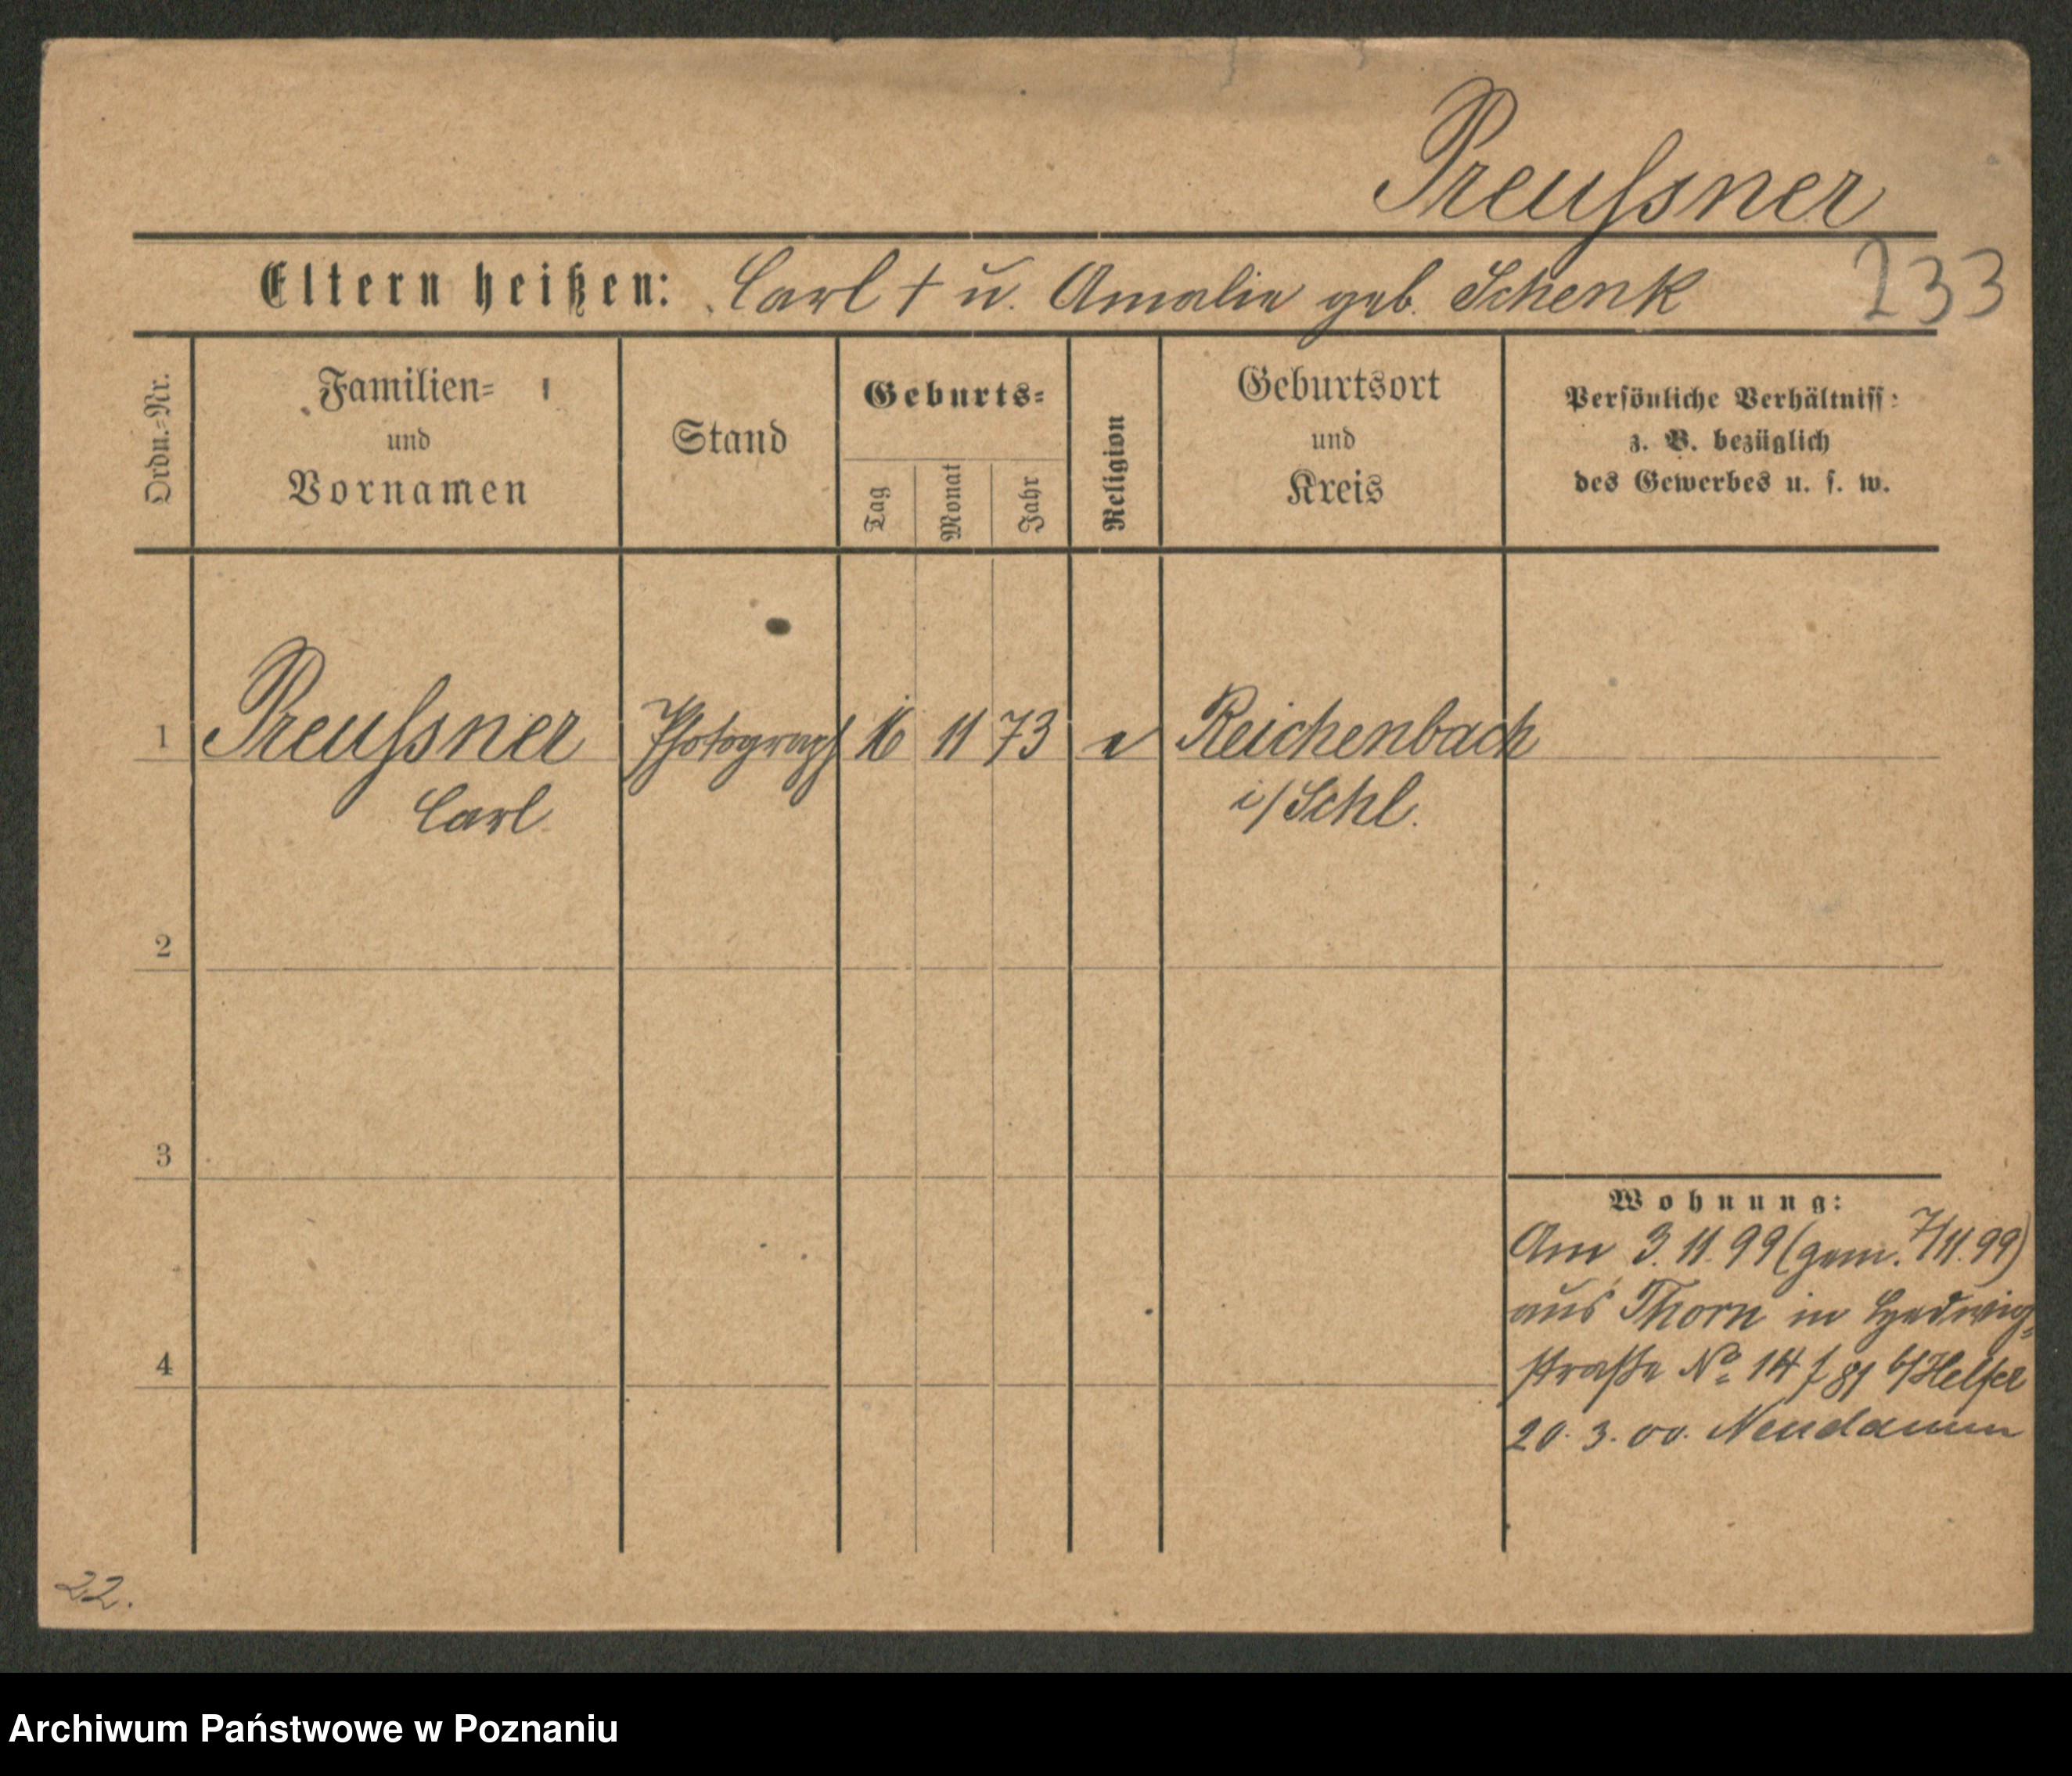 Preußner
Eltern heißen: Carl † u. Amalie geb. Schenk
233
Ordn.=Nr.
Familien=
und
Vornamen
Stand
Geburts=
Tag
Monat
Jahr
Religion
Geburtsort
und
Kreis
Persönliche Verhältniss:
z. B. bezüglich
des Gewerbes u. s. w.
1 Preußner Photograph 16 11 73 e Reichenbach
Carl i/Schl.
2
3
4
Wohnung:
Am 3.11.99 (gem. 7/11.99)
aus Thorn in Hedwig=
straße No 14 f 81 b/Helfer
20.3.00. Neudamm
22.
Archiwum Państwowe w Poznaniu